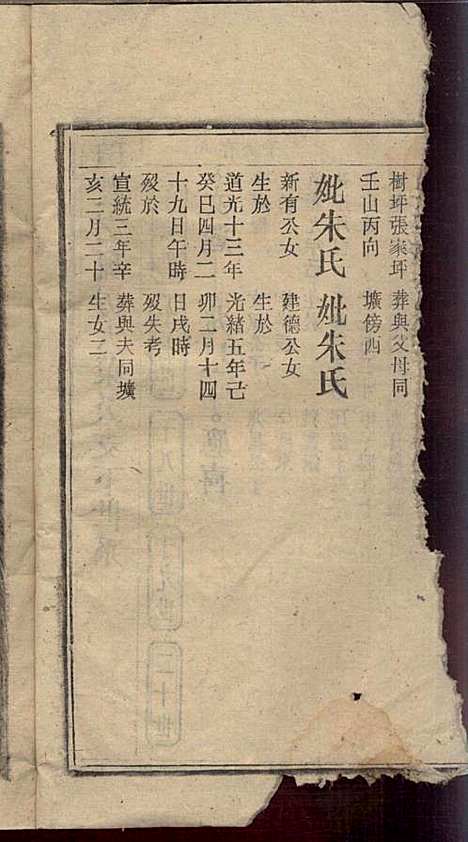 樹坪張家坪
壬山丙向
妣朱氏
新有公女
生於
道光十三年
癸巳四月二
十九日午時
歿於
宣統三年辛
亥二月二十
葬與父母同
壙傍西
妣朱氏
建德公女
生於
光緒五年己
卯二月十四
日戌時
歿失考
葬與夫同壙
生女二